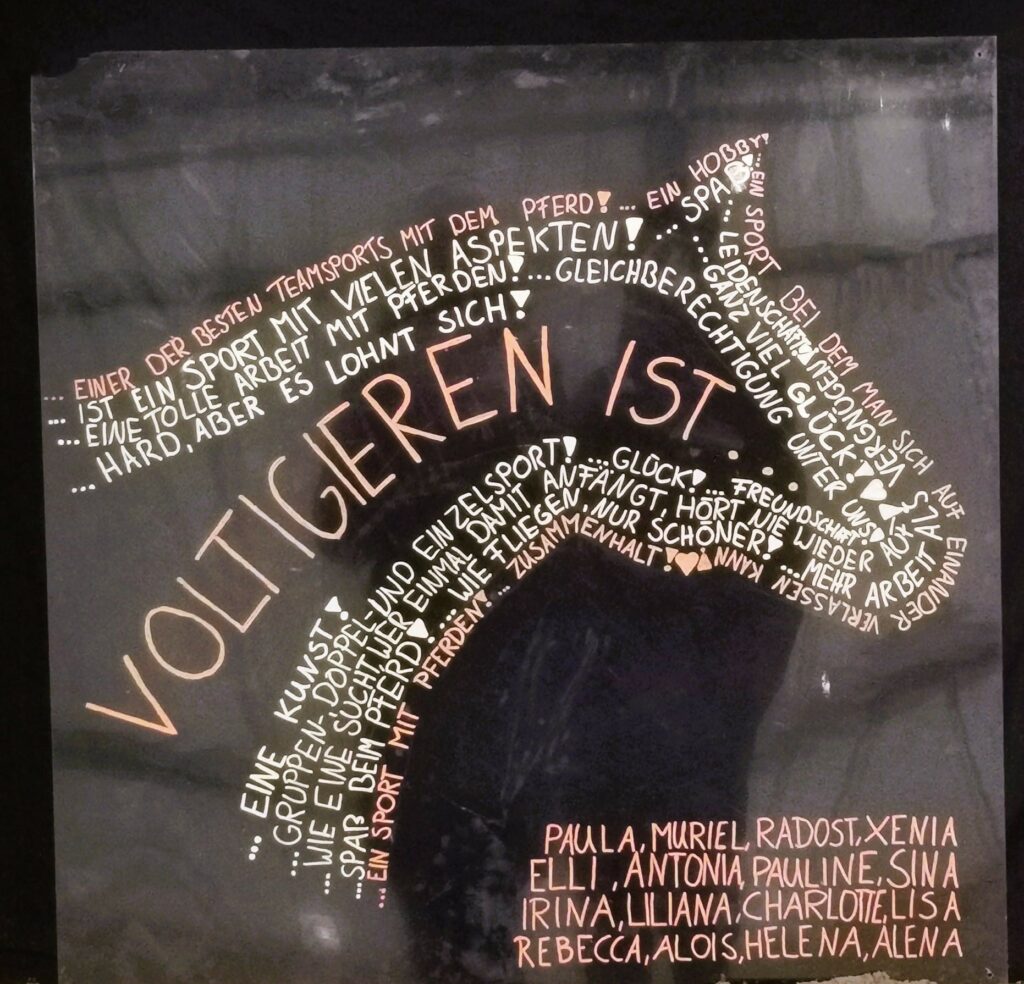 ... EINER DER BESTEN TEAMSPORTS MIT DEM PFERD! ... EIN HOBBY!
... IST EIN SPORT MIT VIELEN ASPEKTEN! ... SPAß!
... EINE TOLLE ARBEIT MIT PFERDEN! ... GLEICHBERECHTIGUNG UNTER UNS!
... HARD, ABER ES LOHNT SICH!
... EIN SPORT BEI DEM MAN SICH AUF EINANDER VERLASSEN KANN
... LEIDENSCHAFT!
... GANZ VIEL GLÜCK!
VOLTIGIEREN IST ...
... EINE KUNST!
... GRUPPEN- DOPPEL- UND EINZELSPORT! ... GLÜCK! ... FREUNDSCHAFT!
... WIE EINE SUCHT, WER EINMAL DAMIT ANFÄNGT, HÖRT NIE WIEDER AUF
... SPAß BEIM PFERD! ... WIE FLIEGEN, NUR SCHÖNER! ... MEHR ARBEIT ALS VERGNÜGEN!
... EIN SPORT MIT PFERDEN! ... ZUSAMMENHALT!
PAULA, MURIEL, RADOST, XENIA
ELLI, ANTONIA, PAULINE, SINA
IRINA, LILIANA, CHARLOTTE, LISA
REBECCA, ALOIS, HELENA, ALENA